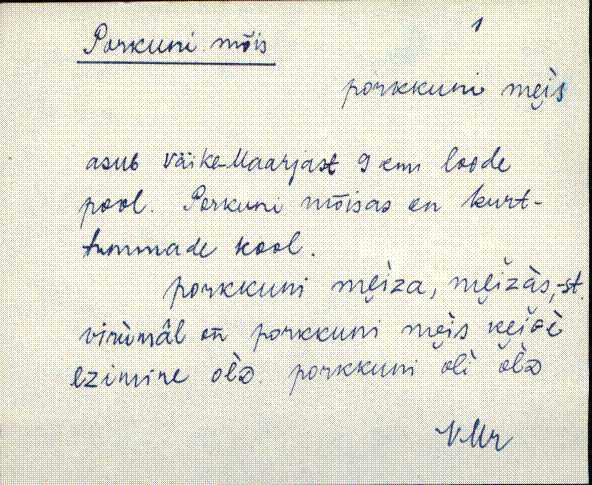 1
Porkuni mõis
porkkuni mẹ̀is
asub Väike-Maarjast 9 km loode
pool. Porkuni mõisas on kurt-
tummade kool.
porkkuni mẹìza, mẹìzàs, -st.
virùmâl on porkkuni mẹìs
ezimine olD. porkkuni olì olD
VMr